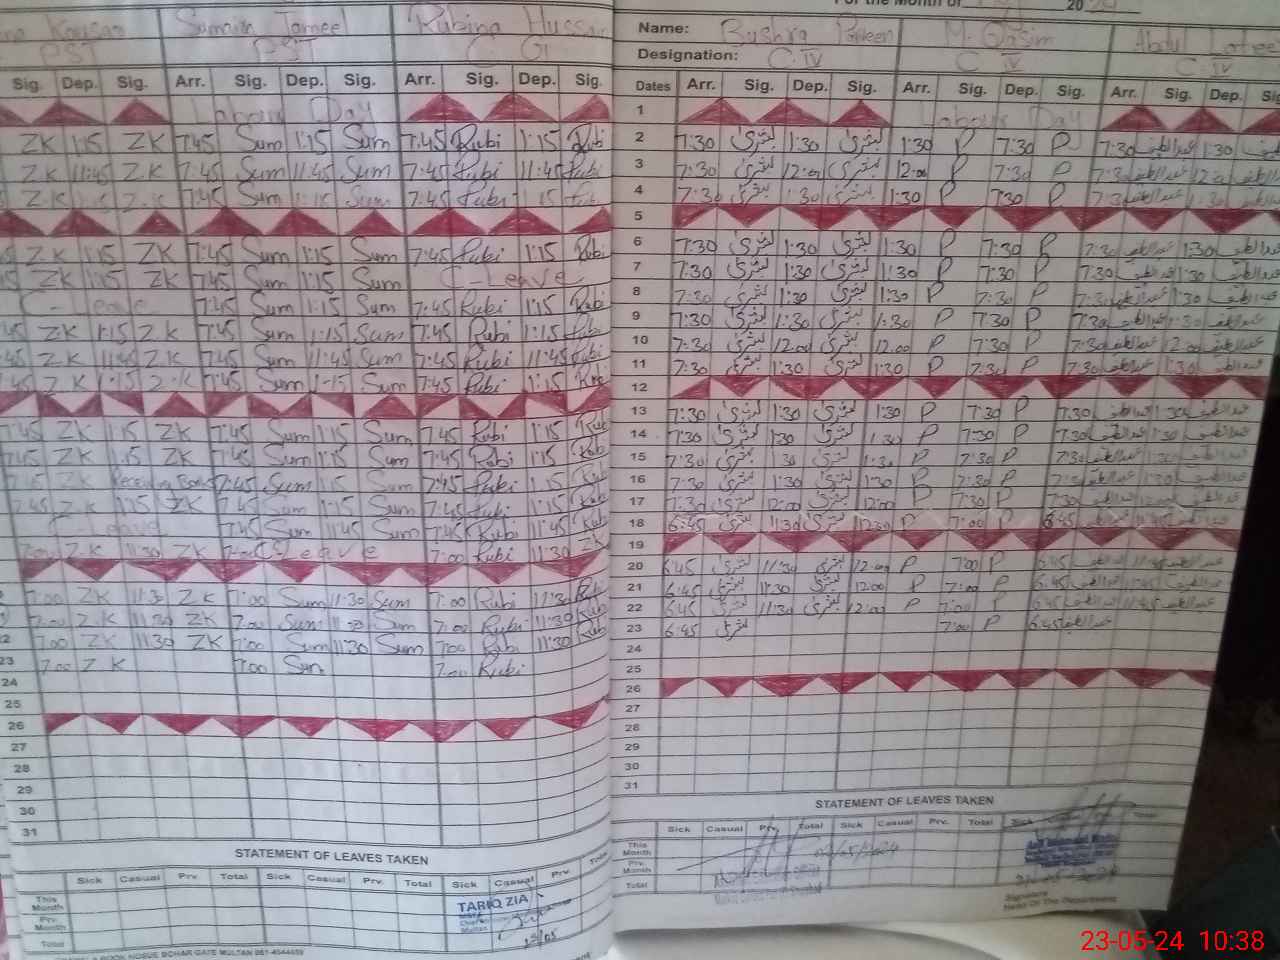 For the Month of 20
Kousar Sumaira Jameel Rubina Hussain
PST PST C.
Sig. Dep. Sig. Arr. Sig. Dep. Sig. Arr. Sig. Dep. Sig.
Labour Day
ZK 1:15 ZK 7:45 Sum 1:15 Sum 7:45 Rubi 1:15 Rubi
ZK 11:45 Z.K 7:45 Sum 11:45 Sum 7:45 Rubi 11:45 Rubi
Z.K Z.K 7:45 Sum 1:15 Sum 7:45 Rubi 1:15
Z K 1:15 ZK 7:45 Sum 1:15 Sum 7:45 Rubi 1:15 Rubi
ZK 1:15 ZK 7:45 Sum 1:15 Sum C-Leave
C Leave 7:45 Sum 1:15 Sum 7:45 Rubi 1:15 Rubi
ZK 1:15 Z K 7:45 Sum 1:15 Sum 7:45 Rubi 1:15 Rubi
ZK 11:45 Z.K 7:45 Sum 11:45 Sum 7:45 Rubi 11:45 Rubi
ZK 1:15 Z.K 7:45 Sum 1:15 Sum 7:45 Rubi 1:15 Rubi
7:45 ZK 1:15 ZK 7:45 Sum 1:15 Sum 7:45 Rubi 1:15 Rubi
7:45 ZK 1:15 ZK 7:45 Sum 1:15 Sum 7:45 Rubi 1:15 Rubi
7:45 ZK 7:45 Sum 1:15 Sum 7:45 Rubi 1:15 Rubi
7:45 ZK 1:15 ZK 7:45 Sum 1:15 Sum 7:45 Rubi 1:15 Rubi
C-Leave 7:45 Sum 11:45 Sum 7:45 Rubi 11:45 Rubi
7:00 Z.K 11:30 ZK 7:00 C Leave 7:00 Rubi 11:30
7:00 ZK 11:30 ZK 7:00 Sum 11:30 Sum 7:00 Rubi 11:30 Rubi
7:00 Z.K 11:30 ZK 7:00 Sum 11:30 Sum 7:00 Rubi 11:30 Rubi
7:00 ZK 11:30 ZK 7:00 Sum 11:30 Sum 7:00 Rubi 11:30 Rubi
23 7:00 Z K 7:00 Sum 7:00 Rubi
24
25
26
27
28
29
30
31
STATEMENT OF LEAVES TAKEN
Sick Casual Prv. Total Sick Casual Prv. Total Sick Casual Prv. Total
This Month
Prv. Month
Total
TARIQ ZIA
Name: Bushra Parveen M. Qasim Abdul Lateef
Designation: C.IV C IV C.IV
Dates Arr. Sig. Dep. Sig. Arr. Sig. Dep. Sig. Arr. Sig. Dep.
1 Labour Day
2 7:30 بشریٰ 1:30 بشریٰ 1:30 P 7:30 P 7:30 عبداللطیف 1:30
3 7:30 بشریٰ 12:00 بشریٰ 12:00 P 7:30 P 7:30 عبداللطیف 12:00
4 7:30 بشریٰ 1:30 بشریٰ 1:30 P 7:30 P 7:30 عبداللطیف 1:30
5
6 7:30 بشریٰ 1:30 بشریٰ 1:30 P 7:30 P 7:30 عبداللطیف 1:30
7 7:30 بشریٰ 1:30 بشریٰ 1:30 P 7:30 P 7:30 عبداللطیف 1:30
8 7:30 بشریٰ 1:30 بشریٰ 1:30 P 7:30 P 7:30 عبداللطیف 1:30
9 7:30 بشریٰ 1:30 بشریٰ 1:30 P 7:30 P 7:30 عبداللطیف 1:30
10 7:30 بشریٰ 12:00 بشریٰ 12:00 P 7:30 P 7:30 عبداللطیف 12:00
11 7:30 بشریٰ 1:30 بشریٰ 1:30 P 7:30 P 7:30 عبداللطیف 1:30
12
13 7:30 بشریٰ 1:30 بشریٰ 1:30 P 7:30 P 7:30 عبداللطیف 1:30
14 7:30 بشریٰ 1:30 بشریٰ 1:30 P 7:30 P 7:30 عبداللطیف 1:30
15 7:30 بشریٰ 1:30 بشریٰ 1:30 P 7:30 P 7:30 عبداللطیف 1:30
16 7:30 بشریٰ 1:30 بشریٰ 1:30 P 7:30 P 7:30 عبداللطیف 1:30
17 7:30 بشریٰ 12:00 بشریٰ 12:00 P 7:30 P 7:30 عبداللطیف
18 6:45 بشریٰ 11:30 بشریٰ 12:30 P 7:00 P 6:45 عبداللطیف
19
20 6:45 بشریٰ 11:30 بشریٰ 12:00 P 7:00 P 6:45 عبداللطیف 11:45
21 6:45 بشریٰ 11:30 بشریٰ 12:00 P 7:00 P 6:45 عبداللطیف 11:45
22 6:45 بشریٰ 11:30 بشریٰ 12:00 P 7:00 P 6:45 عبداللطیف 11:45
23 6:45 بشریٰ 7:00 P 6:45 عبداللطیف
24
25
26
27
28
29
30
31
STATEMENT OF LEAVES TAKEN
Sick Casual Prv. Total Sick Casual Prv. Total Sick
This Month
Prv. Month
Total
Signature
Head Of The Department
23-05-24 10:38